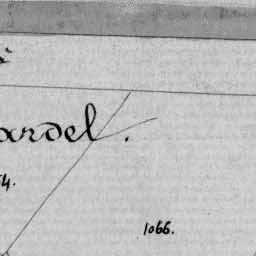 ardel.
4.
1066.